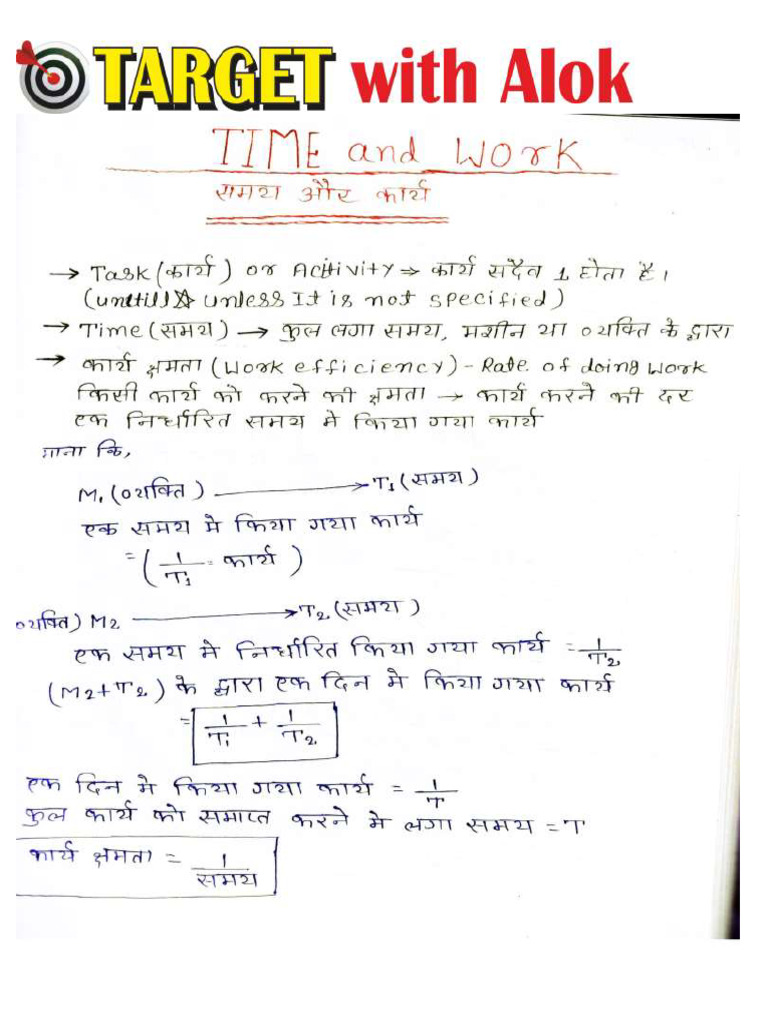 TARGET with Alok
TIME and WORK
समय और कार्य
→ Task (कार्य) or Acitivity ⇒ कार्य सदैव 1 होता है।
(untill & unless It is not specified)
→ Time (समय) → कुल लगा समय, मशीन या व्यक्ति के द्वारा
→ कार्य क्षमता (Work efficiency) - Rate. of doing work
किसी कार्य को करने की क्षमता → कार्य करने की दर
एक निर्धारित समय मे किया गया कार्य
माना कि,
M₁ (व्यक्ति) → T₁ (समय)
एक समय मे किया गया कार्य
= (1/T₁ = कार्य)
व्यक्ति) M2 → T₂ (समय)
एक समय मे निर्धारित किया गया कार्य = 1/T₂
(M2+T2) के द्वारा एक दिन मे किया गया कार्य
= 1/T₁ + 1/T₂
एक दिन मे किया गया कार्य = 1/T
कुल कार्य को समाप्त करने मे लगा समय = T
कार्य क्षमता = 1/समय